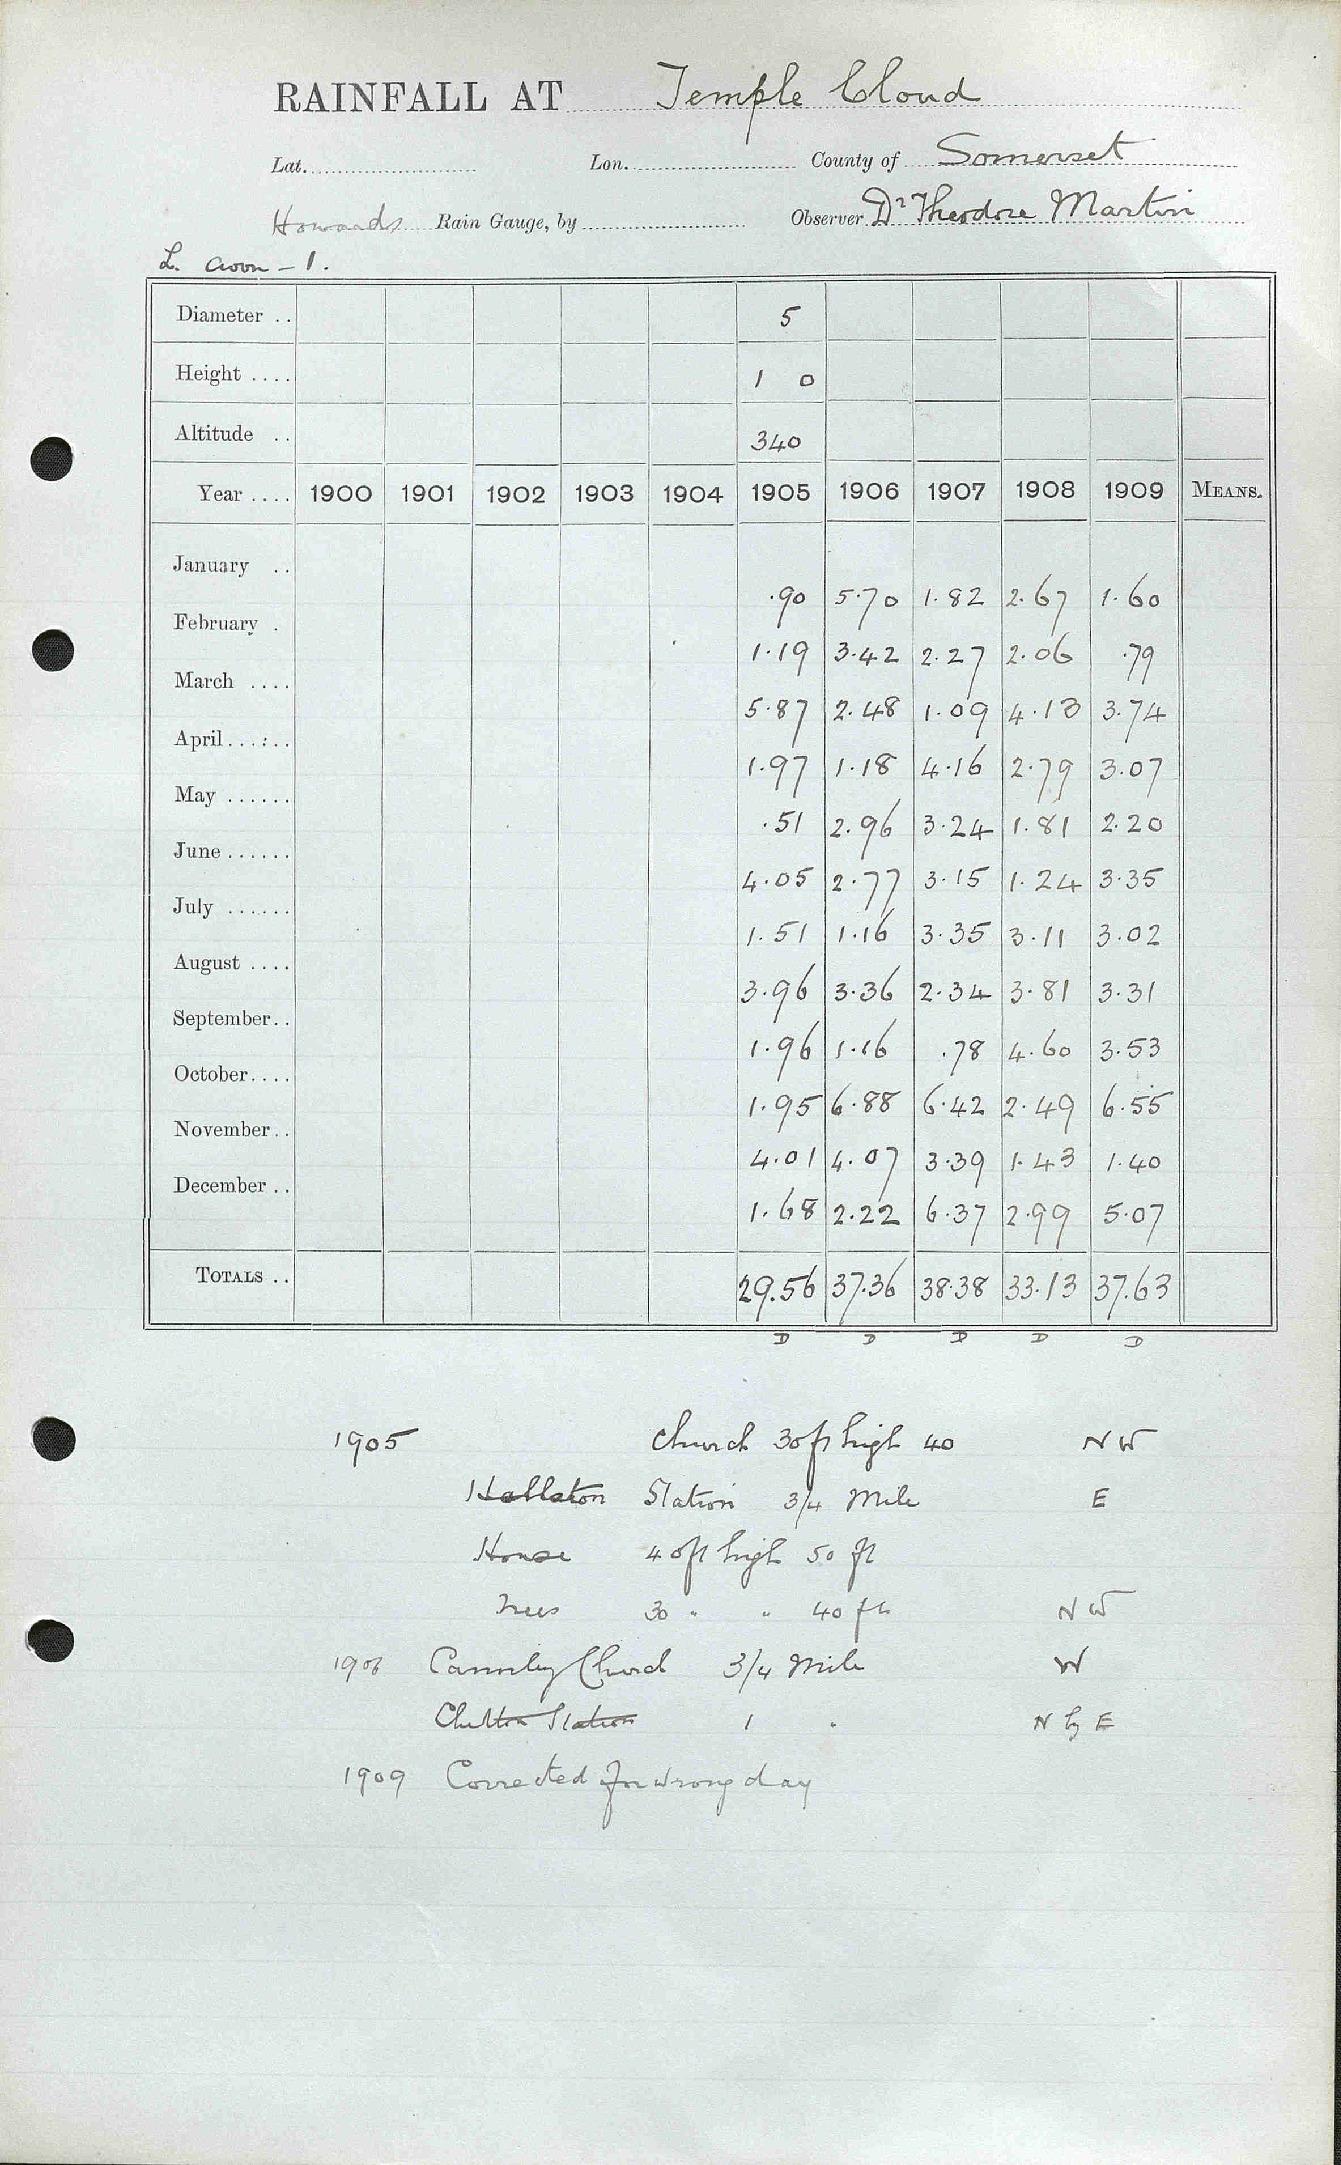 RAINFALL AT Temple Cloud
Lat. Lon. County of Somerset
Howards Rain Gauge, by Observer Dr Theodore Martin
L. Avon - 1.
Diameter .. 5
Height .... 1 0
Altitude .. 340
Year .... 1900 1901 1902 1903 1904 1905 1906 1907 1908 1909 MEANS.
January .. .90 5.70 1.82 2.67 1.60
February . 1.19 3.42 2.27 2.06 .79
March .... 5.87 2.48 1.09 4.13 3.74
April...... 1.97 1.18 4.16 2.79 3.07
May ...... .51 2.96 3.24 1.81 2.20
June ...... 4.05 2.77 3.15 1.24 3.35
July ...... 1.51 1.16 3.35 3.11 3.02
August .... 3.96 3.36 2.34 3.81 3.31
September.. 1.96 1.16 .78 4.60 3.53
October.... 1.95 6.88 6.42 2.49 6.55
November.. 4.01 4.07 3.39 1.43 1.40
December .. 1.68 2.22 6.37 2.99 5.07
TOTALS .. 29.56 37.36 38.38 33.13 37.63
D D D D D
1905 Church 30ft high 40 NW
Hallatrow Station 3/4 Mile E
House 40ft high 50 ft
Trees 30 " " 40 ft NW
1906 Cameley Church 3/4 Mile W
Clutton Station 1 " N by E
1909 Corrected for wrong day